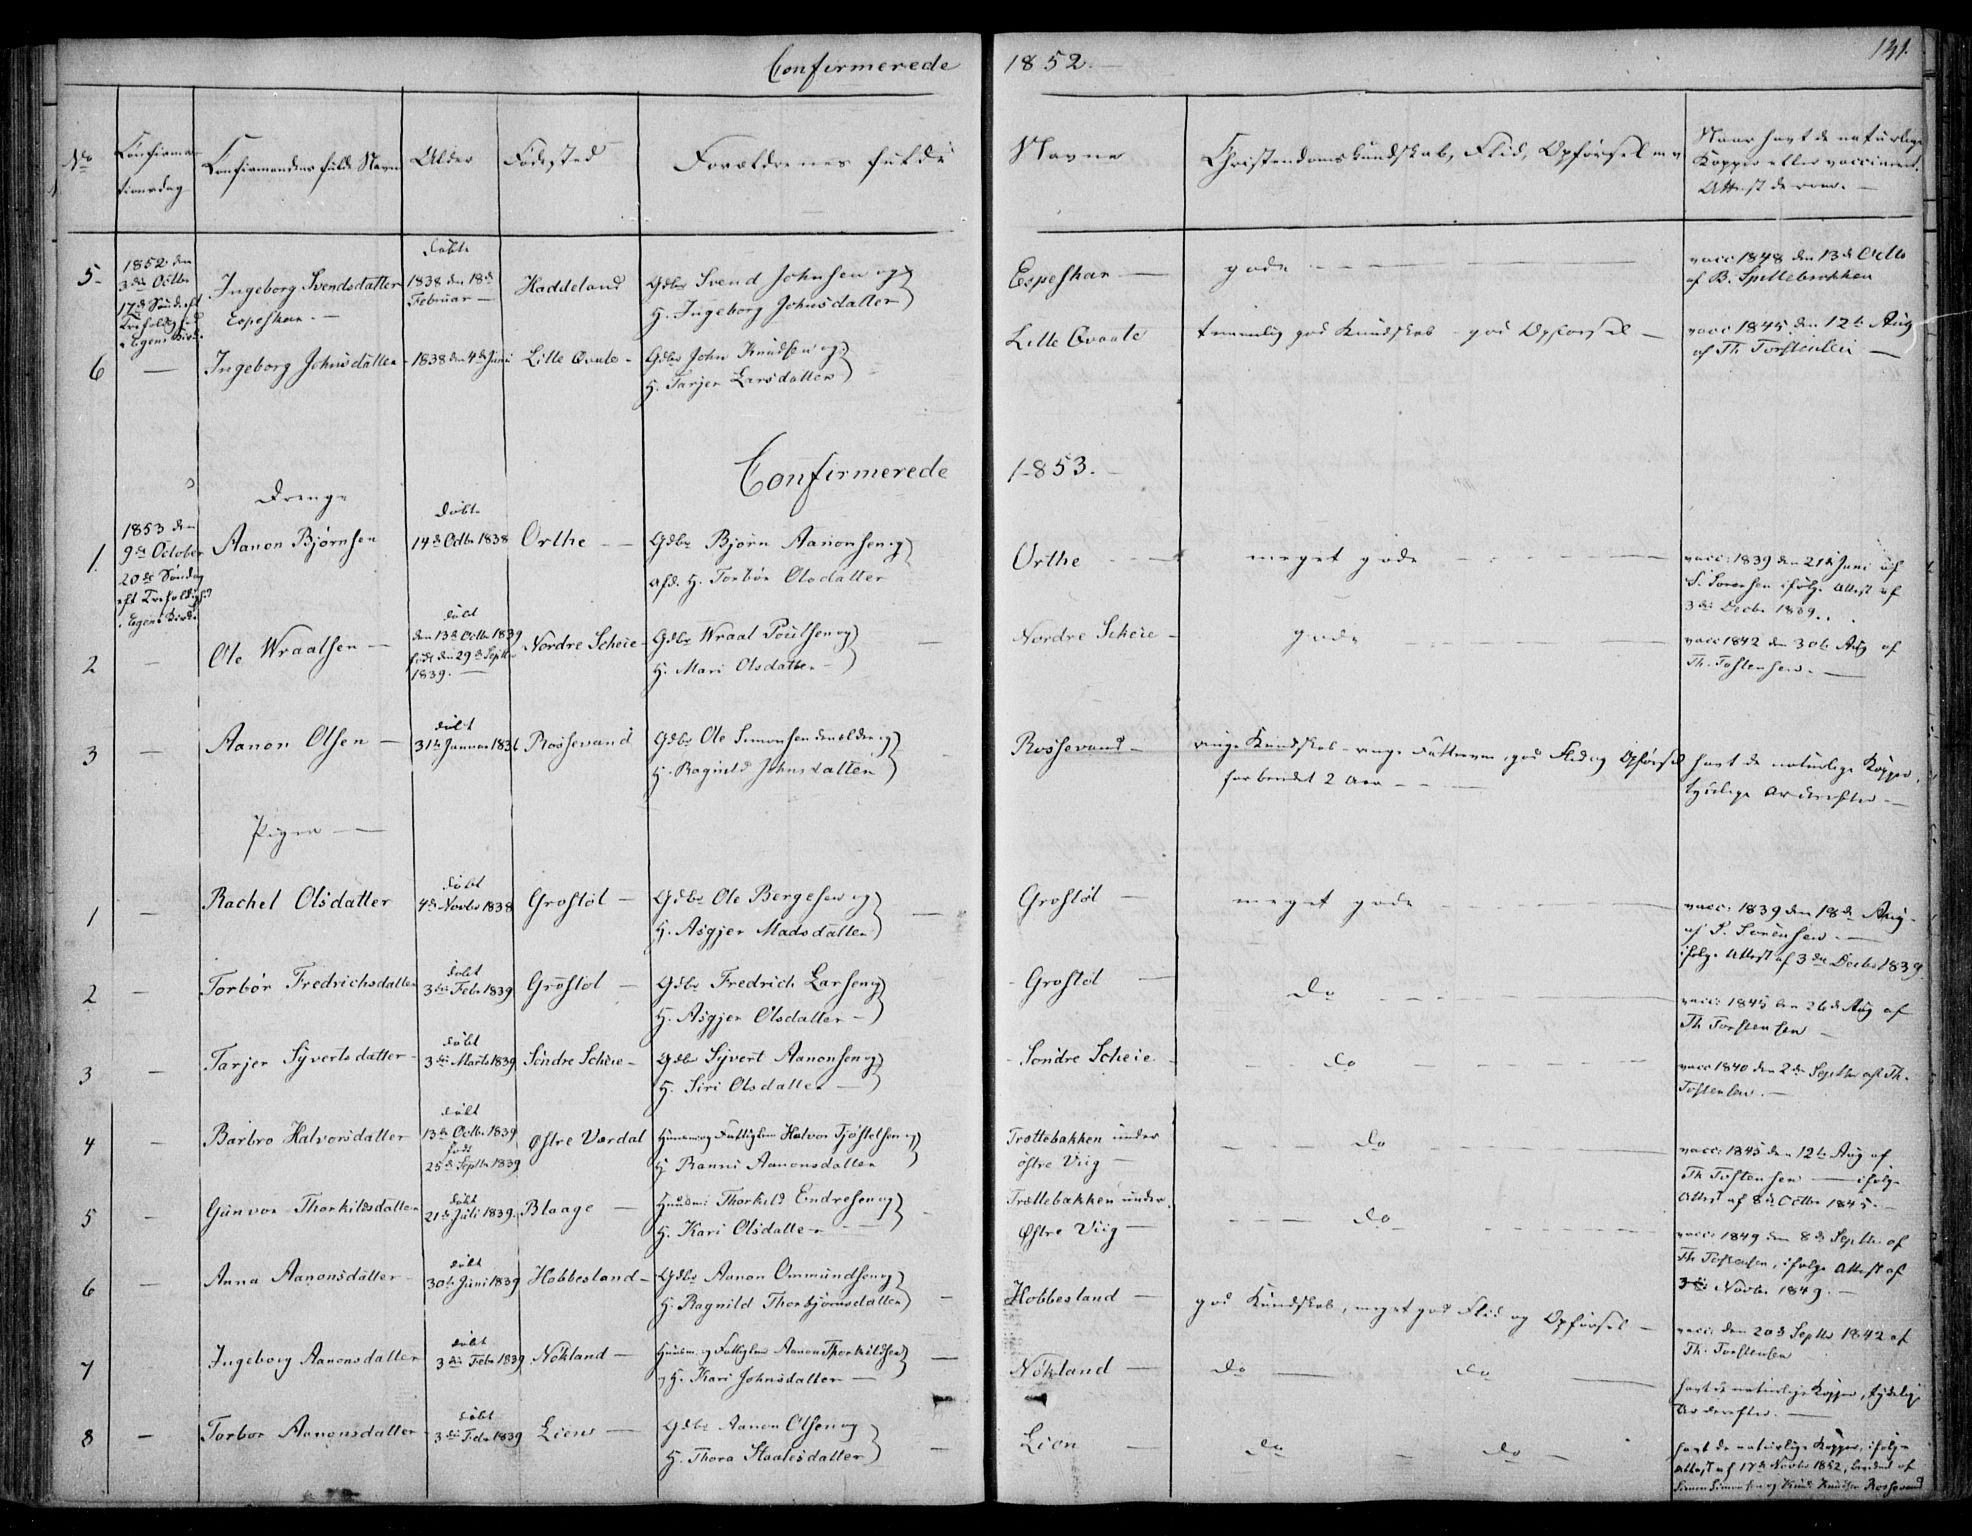 Confirmerede 1852.
141.
No
Confirma-
tionsdag
Confirmandens fulde Navn
Alder
Fødested
Forældrenes fulde
Navne
Christendomskundskab, Flid, Opførsel m. v.
Naar havt de naturlige
Kopper eller vaccineret.
Attest derom.
5
1852 den
3die Octbr
17de Sønd. eft
Trefoldighed
Døbt
Ingeborg Svendsdatter
Espeskar.
1838 den 18de
Februar
Haddeland
Gdbr Svend Johnsen og
H. Ingeborg Johnsdatter
Espeskar
gode
vacc 1848 den 13de Octbr
af B. Spillebrokken
6
Ingeborg Johnsdatter
1838 den 4de Juni
Lille Qvale
Gdbr John Knudsen og
H. Tarjer Larsdatter
Lille Qvale
temmelig god Kundskab god Opførsel
vacc 1845 den 12te Aug
af Th
Confirmerede 1853.
Drenge
1
1853 den
9de October
20de Søndag
eft Trefoldigh.
Aanon Bjørnsen
Døbt
14de Octbr 1838
Orthe
Gdbr Bjørn Aanonsen og
afd. H. Torbör Olsdatter
Orthe
meget gode
vacc: 1839 den 21de Juni af
S. Sorensen ifølge Attest af
3die Decbr 1839.
2
Ole Wraalsen
døbt
den 13de Octbr 1839
født den 29de Septbr
1839.
Nordre Scheie
Gdbr Wraal Poulsen og
H. Mari Olsdatter
Nordre Scheie
gode
vacc 1842 den 30te Aug af
Th. Tostensen.
3
Aanon Olsen
døbt
31te Januar 1836
Rossevand
Gdbr Ole Simonsen den eldre og
H. Ragnild Johnsdatter
Rossevand
ringe Kundskab - ringe Fatteevne, god Flid og Opførsel
forberedet 2 Aar
havt de naturlige Kopper,
tydelige Ar derefter
Piger
1
Rachel Olsdatter
døbt
4de Novbr 1838
Grostöl
Gdbr Ole Bergesen og
H. Asgjer Madsdatter
Grostöl
meget gode
vacc: 1839 den 18de Aug
af S. Sörensen
ifølge Attest af 3die Decbr 1839
2
Torbör Fredrichsdatter
døbt
3die Febr 1839
Grostöl
Gdbr Fredrich Larsen og
H. Asgjer Olsdatter
Grostöl
Do
vacc: 1845 den 26de Aug af
Th Torstensen
3
Tarjer Syvertsdatter
døbt
3die Marts 1839
Söndre Scheie
Gdbr Syvert Aanonsen og
H. Siri Olsdatter
Söndre Scheie
Do
vacc 1840 den 2den Septbr af Th.
Tostensen.
4
Barbro Halvorsdatter
døbt
13de Octbr 1839
født
25de Septbr 1839
Østre Værdal
Huusm og Fattiglem Halvor Tjöstelsen og
H. Ranni Aanonsdatter
Trottebakken under
östre Viig
Do
vacc: 1845 den 12te Aug af
Th Tostensen ifølge
Attest af 8de Octbr 1845.
5
Gunvor Thorkildsdatter
døbt
21de Juli 1839.
Blaage
Huusm: Thorkild Endresen og
H. Kari Olsdatter
Trættebakken under
Østre Viig
Do
vacc: 1849 den 8de Septbr af
Th Tostensen, ifølge Attest af
3die Novbr 1849.
6
Anna Aanonsdatter
døbt
30te Juni 1839
Hobbesland
Gdbr Aanon Ommundsen og
H. Ragnild Thorbjörnsdatter
Hobbesland
god Kundskab, meget god Flid og Opførsel
vacc: den 20de Septbr 1842 af
Th. Torstensen
7
Ingeborg Aanonsdatter
døbt
3die Febr 1839
Nökland
Huusm. og Fattiglem Aanon Thorkildsen
og H. Kari Johnsdatter
Nökland
Do Do
havt de naturlige Kopper, tydelige
Ar derefter.
8
Torbor Aanonsdatter
døbt
3die Febr 1839
Lien
Gdbr Aanon Olsen og
H. Thora Staalesdatter
Lien
Do Do
havt de naturlige Kopper, ifølge
Attest af 17de Novbr 1852, af
Simon Simonsen og Knud Knudsen Rossevand